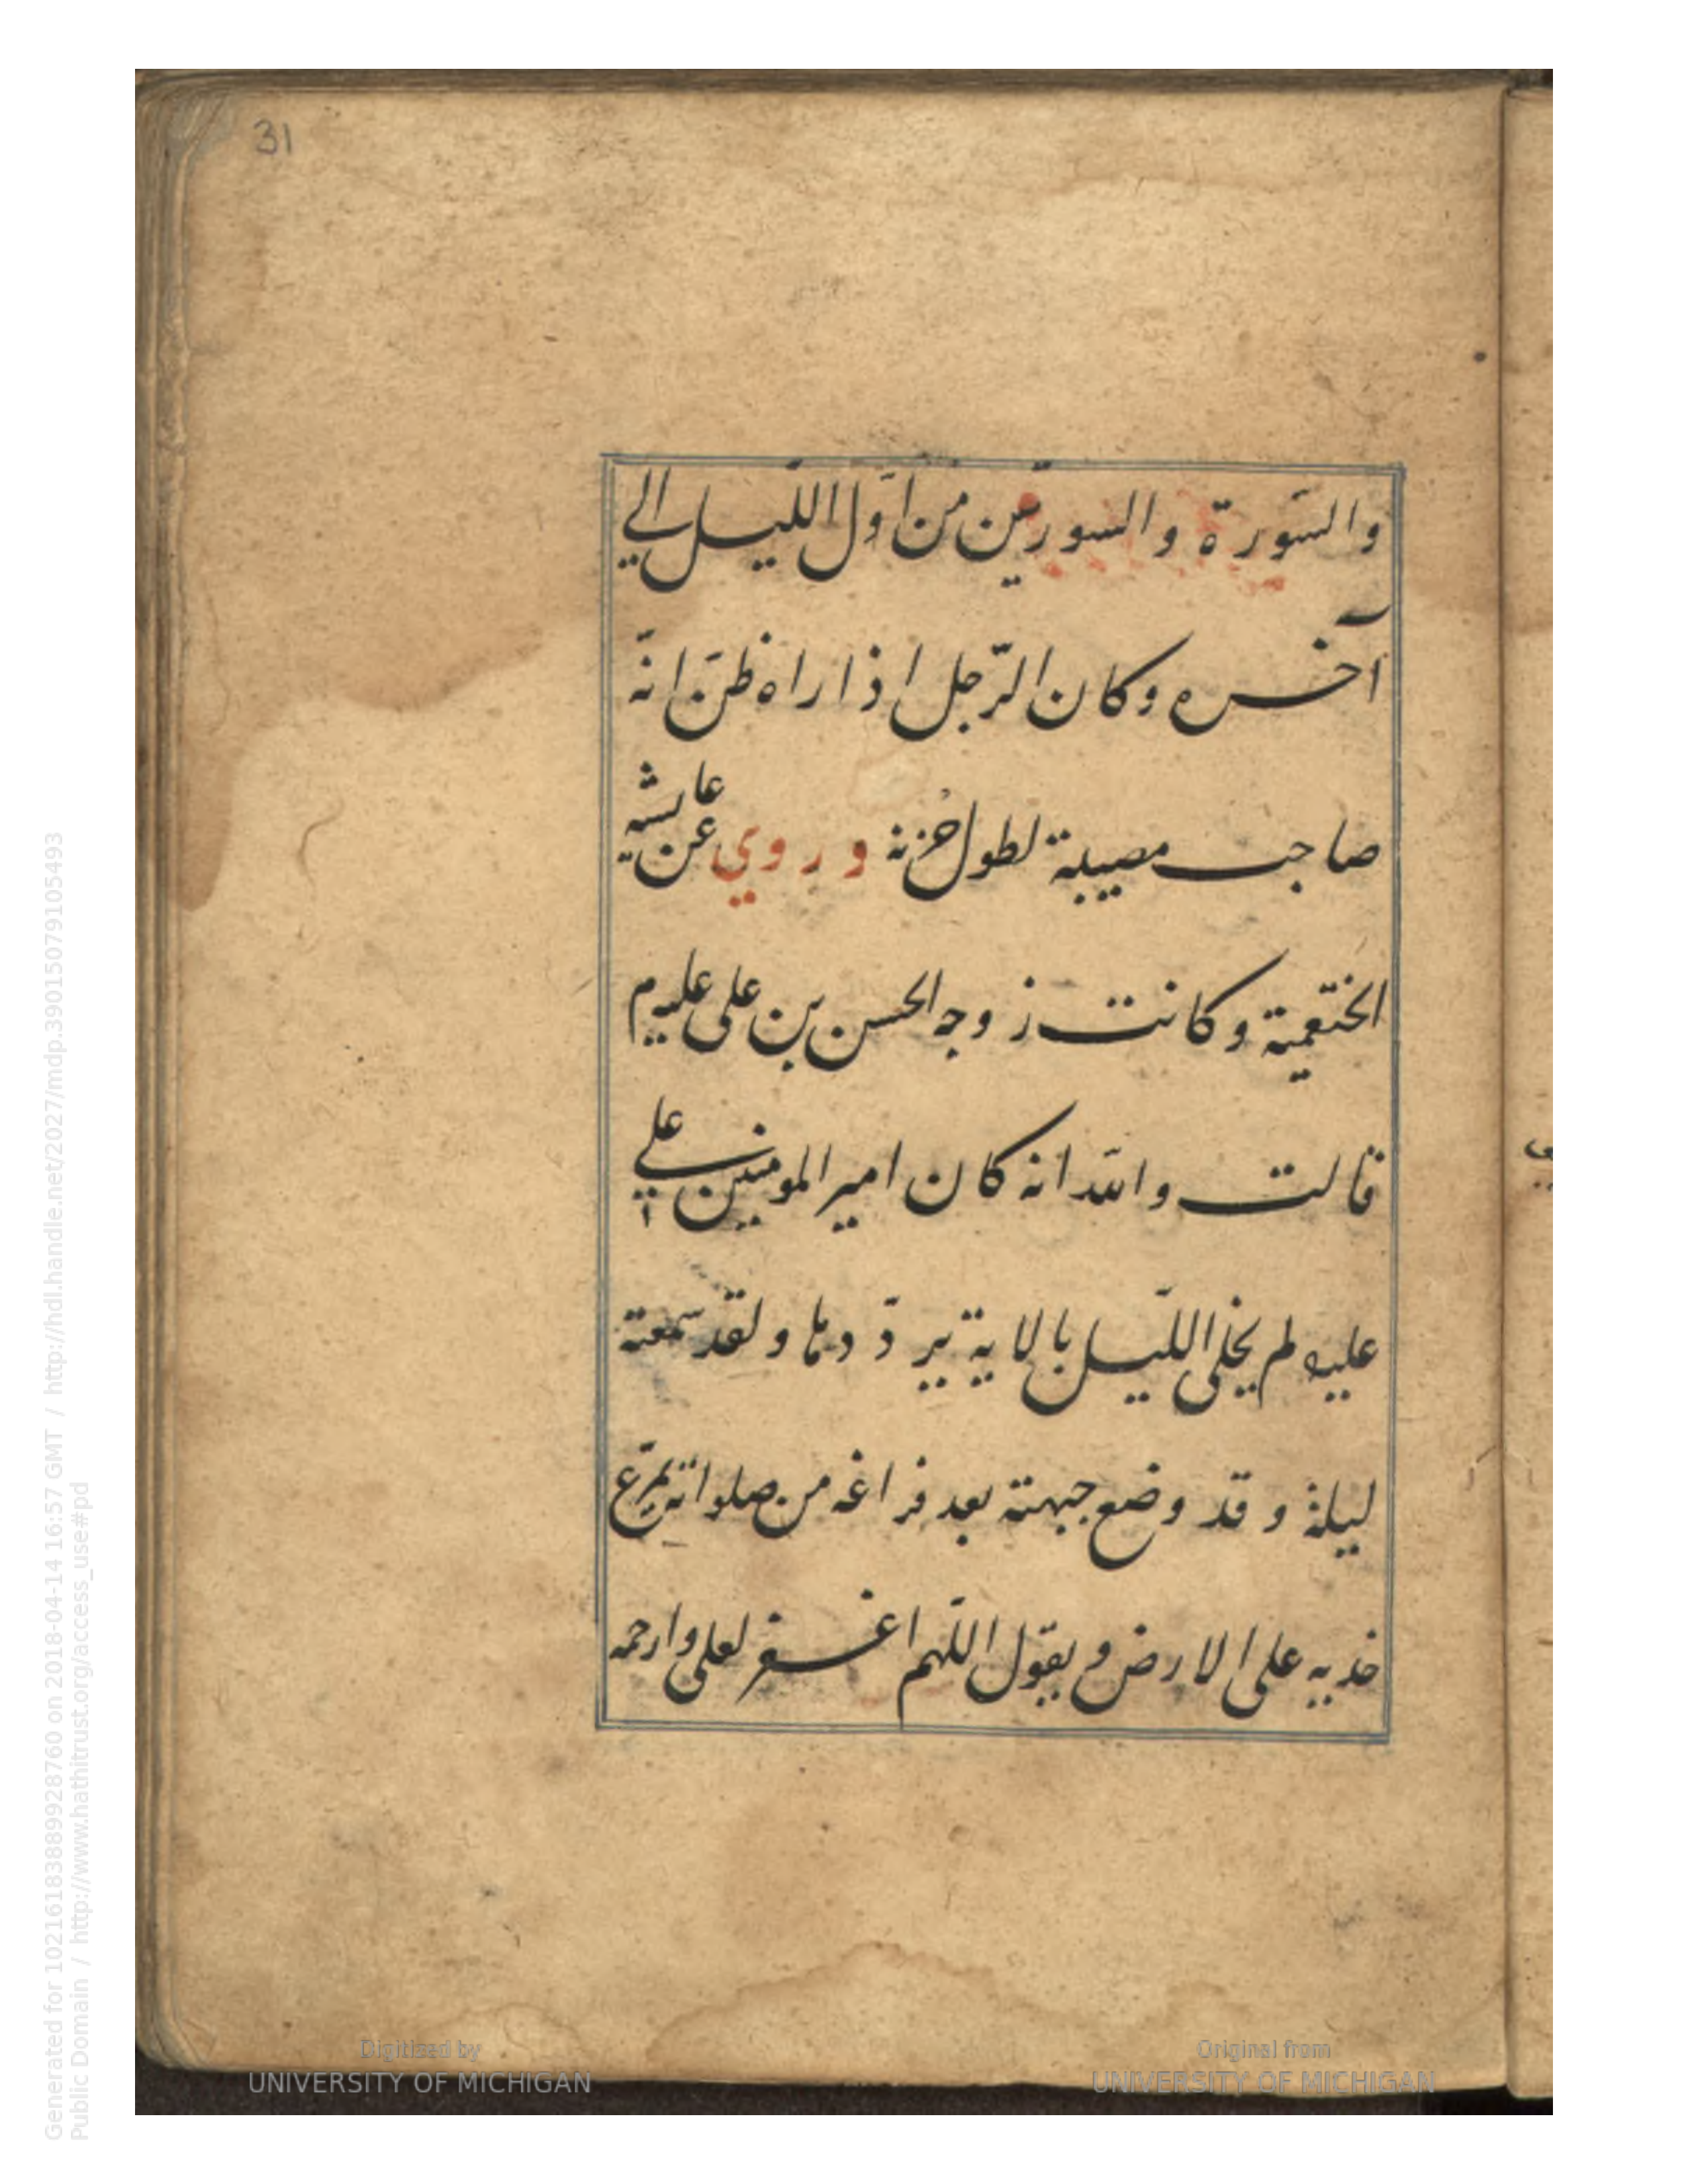 31
والسّورة والسورتين من اوّل اللّيل الي
آخره وكان الرّجل اذا راه ظنّ انّه
صاحب مصيبة لطول حزنه وروي عن عايشه
الخثعميّة وكانت زوجه الحسن بن على عليهم
قالت والله انه كان امير المومنين علي
عليه لم يخلى اللّيل بالاية يردّدها ولقد سمعته
ليلة وقد وضع جبهته بعد فراغه من صلواته يمرّغ
خديه على الارض ويقول اللّهم اغفر لعلى وارحمه
Digitized by
UNIVERSITY OF MICHIGAN
Original from
UNIVERSITY OF MICHIGAN
Generated for 1021618388998928760 on 2018-04-14 16:57 GMT / http://hdl.handle.net/2027/mdp.39015079105493
Public Domain / http://www.hathitrust.org/access_use#pd